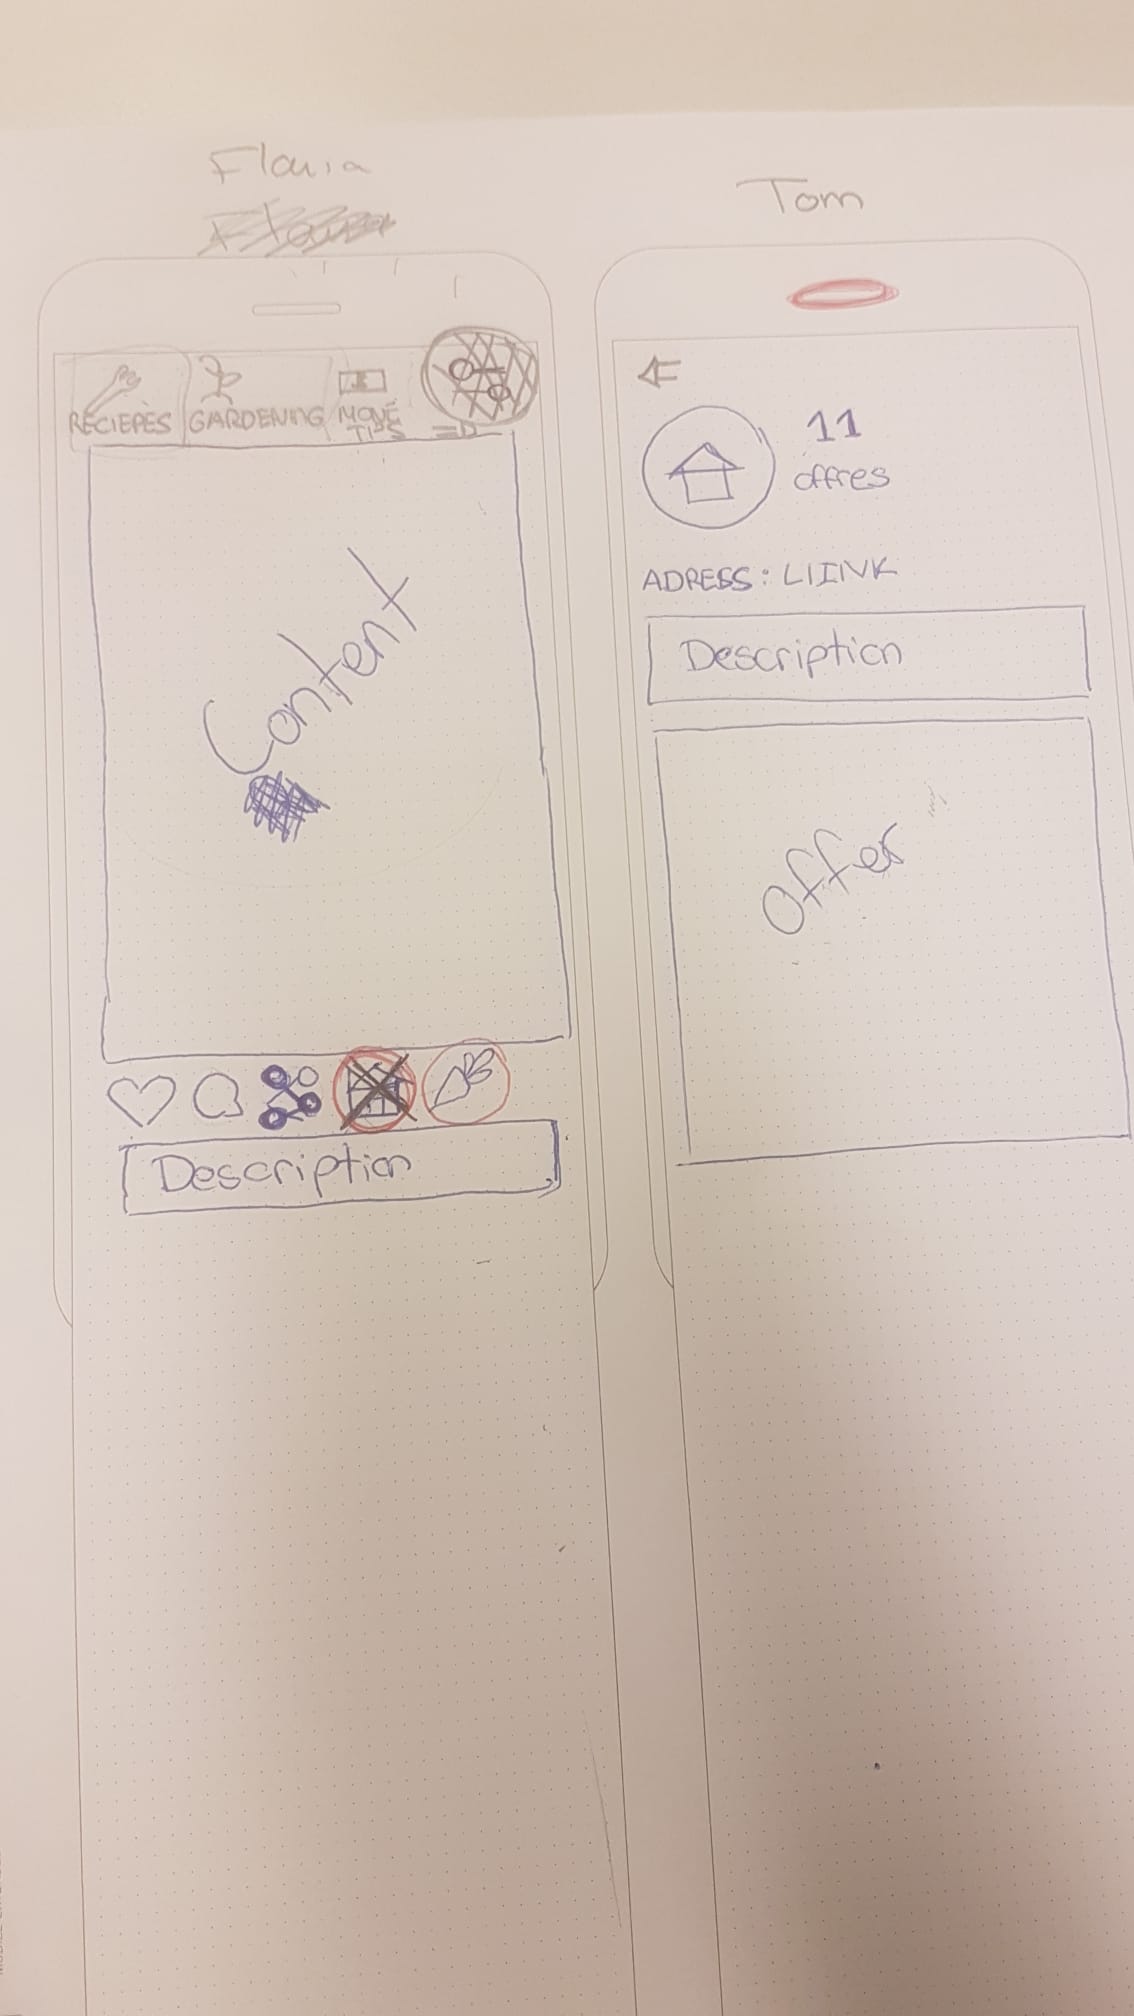 Flavia
Tom
RECIEPES
GARDENING
MONÉ
TIPS
Content
Description
11
offres
ADRESS: LIINK
Description
Offer